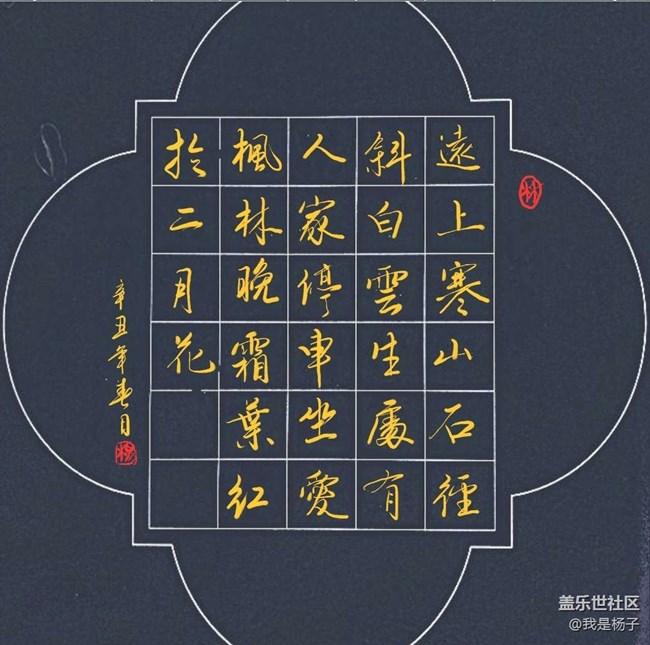 遠上寒山石徑
斜白雲生處有
人家停車坐愛
楓林晚霜葉紅
於二月花
辛丑年春月
盖乐世社区
@我是杨子